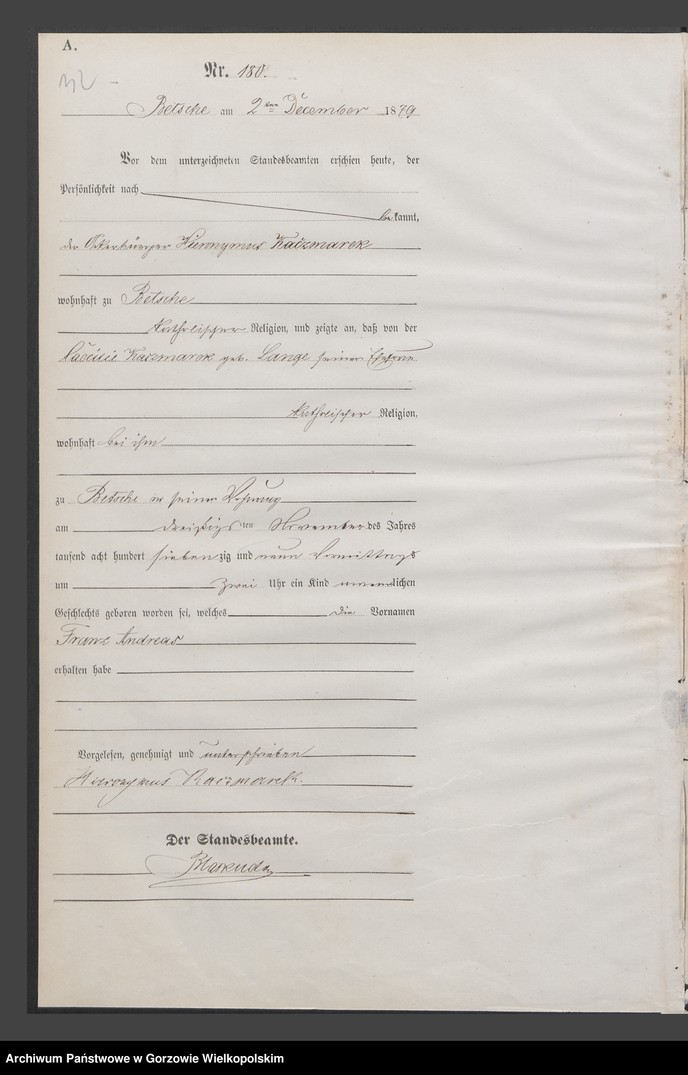 A.
Nr. 180.
Betsche am 2ten December 1879
Vor dem unterzeichneten Standesbeamten erschien heute, der
Persönlichkeit nach
bekannt,
der Ackerbürger Hieronymus Kaczmarek
wohnhaft zu Betsche
katholischer Religion, und zeigte an, daß von der
Cäcilie Kaczmarek geb. Lange seiner Ehefrau
katholischer Religion,
wohnhaft bei ihm
zu Betsche in seiner Wohnung
am dreißigsten November des Jahres
tausend acht hundert siebenzig und neun Vormittags
um zwei Uhr ein Kind männlichen
Geschlechts geboren worden sei, welches die Vornamen
Franz Andreas
erhalten habe
Vorgelesen, genehmigt und unterschrieben
Hieronymus Kaczmarek.
Der Standesbeamte.
Archiwum Państwowe w Gorzowie Wielkopolskim